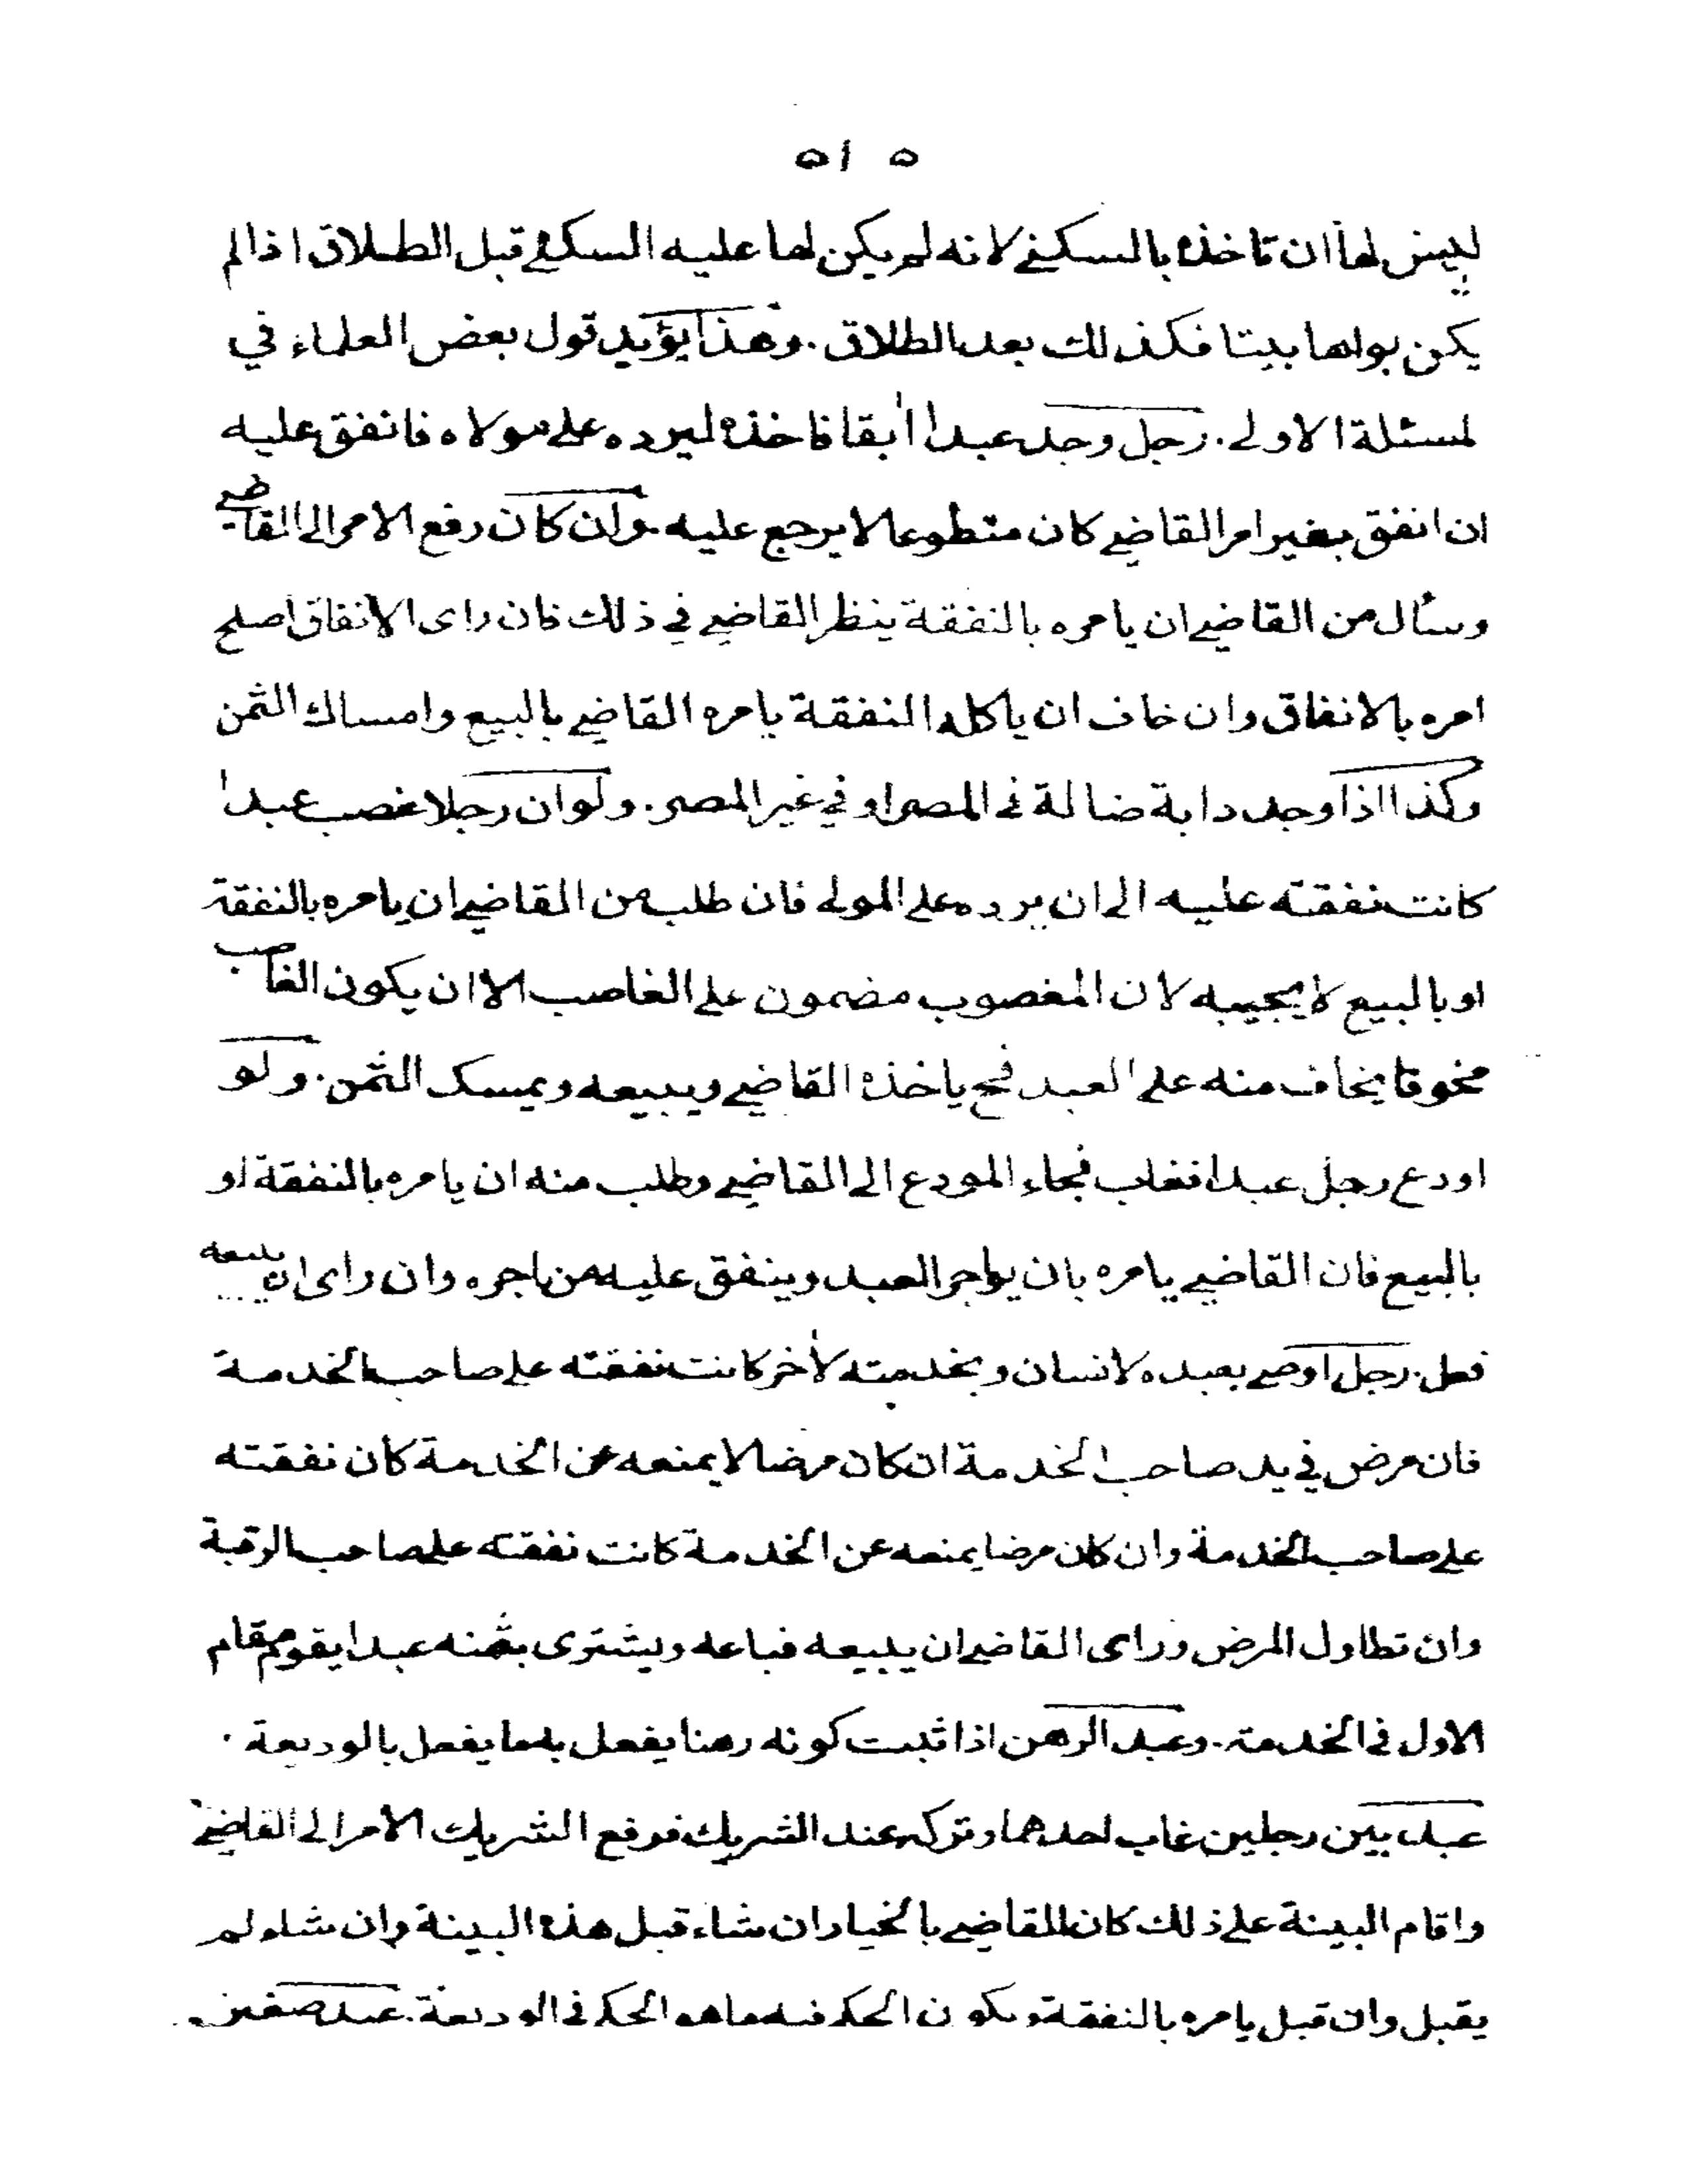 ٥١٥
ليس لها ان تاخذه بالسكنى لانه لم يكن لها عليه السكنى قبل الطلاق اذا لم
يكن بواها بيتا فكذلك بعد الطلاق . وهذا يؤيد قول بعض العلماء في
لمسئلة الاولى . رجل وجد عبدا اٰبقا فاخذه ليرده على مولاه فانفق عليه
ان انفق بغير امر القاضي كان متطوعا لا يرجع عليه . وان كان رفع الامر الى القاضي
وسأل من القاضي ان يامره بالنفقة ينظر القاضي في ذلك فان راى الانفاق اصلح
امره بالانفاق وان خاف ان ياكله النفقة يامره القاضي بالبيع وامساك الثمن
وكذا اذا وجد دابة ضالة في المصر او في غير المصر . ولو ان رجلا غصب عبدا
كانت نفقته عليه الى ان يرده على المولى فان طلب من القاضي ان يامره بالنفقة
او بالبيع لا يجيبه لان المغصوب مضمون على الغاصب الا ان يكون الغاصب
مخوفا يخاف منه على العبد فح ياخذه القاضي ويبيعه ويمسك الثمن . ولو
اودع رجل عبدا فغاب فجاء المودع الى القاضي وطلب منه ان يامره بالنفقة او
بالبيع فان القاضي يامره بان يواجر العبد وينفق عليه من اجره وان راى ان يبيعه
فعل . رجل اوصى بعبده لانسان وبخدمته لاٰخر كانت نفقته على صاحب الخدمة
فان مرض في يد صاحب الخدمة ان كان مرضا لا يمنعه عن الخدمة كان نفقته
على صاحب الخدمة وان كان مرضا يمنعه عن الخدمة كانت نفقته على صاحب الرقبة
وان تطاول المرض وراى القاضي ان يبيعه فباعه ويشترى بثمنه عبدا يقوم مقام
الاول في الخدمة . وعبد الرهن اذا ثبت كونه رهنا يفعل به ما يفعل بالوديعة .
عبد بين رجلين غاب احدهما وتركه عند الشريك فرفع الشريك الامر الى القاضي
واقام البينة على ذلك كان للقاضي بالخيار ان شاء قبل هذه البينة وان شاء لم
يقبل وان قبل يامره بالنفقة ويكون الحكم فيه ما هو الحكم في الوديعة . عبد صغير